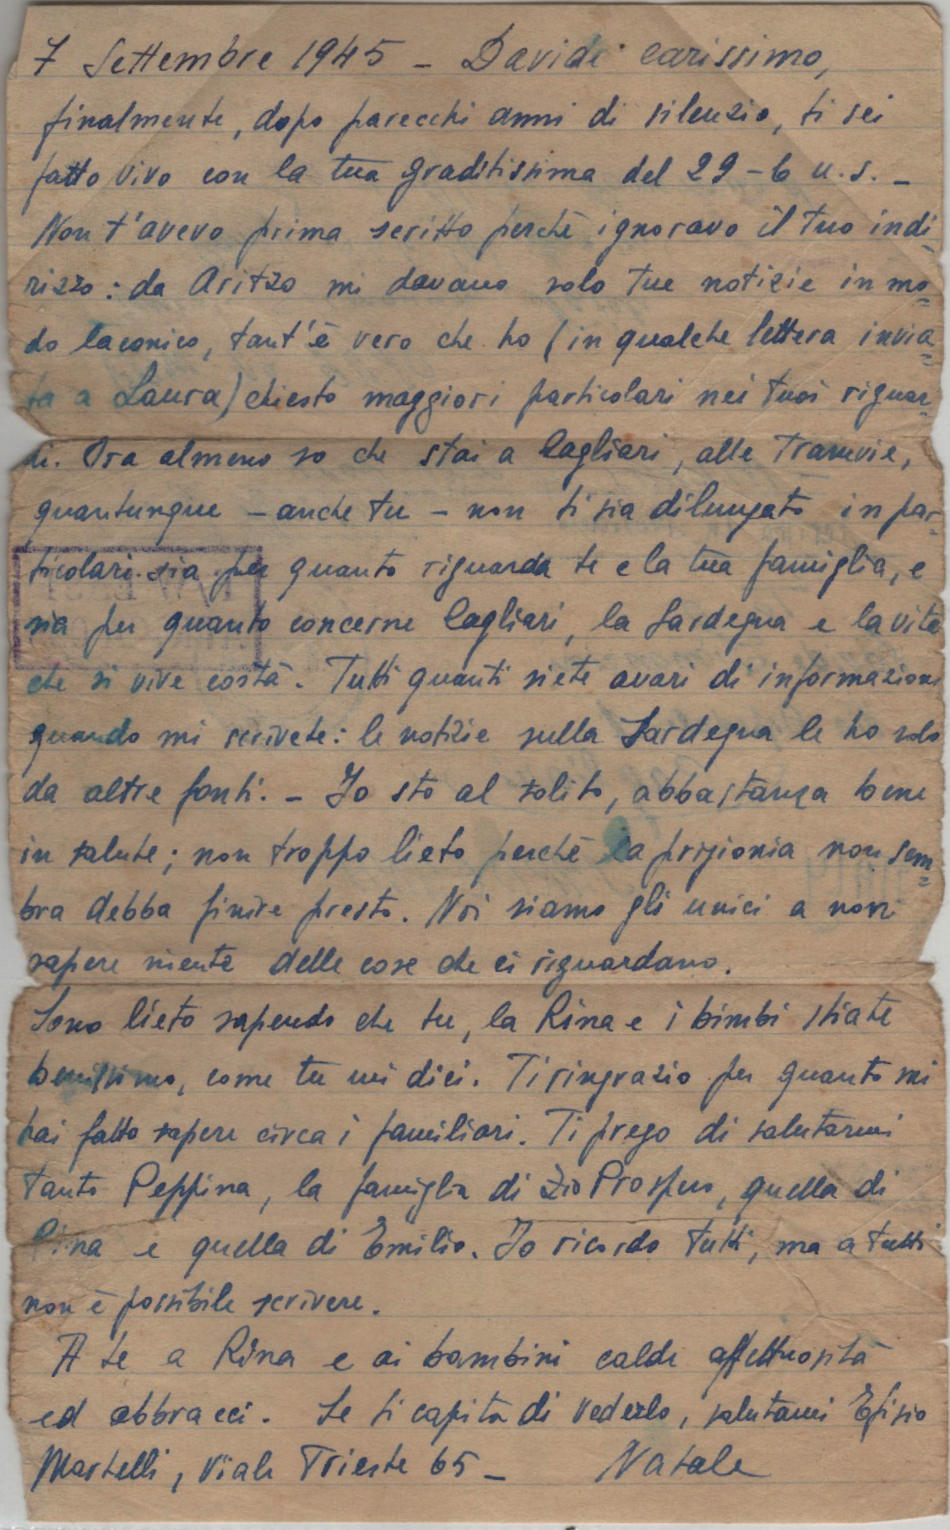 7 Settembre 1945 - Davide carissimo,
finalmente, dopo parecchi anni di silenzio, ti sei
fatto vivo con la tua graditissima del 29-6 u.s. -
Non t'avevo prima scritto perchè ignoravo il tuo indi=
rizzo: da Aritzo mi davano solo tue notizie in mo=
do laconico, tant'è vero che ho (in qualche lettera invia=
ta a Laura) chiesto maggiori particolari nei tuoi riguar=
di. Ora almeno so che stai a Cagliari, alle Tramvie,
quantunque - anche tu - non ti sia dilungato in par=
ticolari sia per quanto riguarda te e la tua famiglia, e
sia per quanto concerne Cagliari, la Sardegna e la vita
che si vive costà. Tutti quanti siete avari di informazioni
quando mi scrivete: le notizie sulla Sardegna le ho solo
da altre fonti. - Io sto al solito, abbastanza bene
in salute; non troppo lieto perchè la prigionia non sem=
bra debba finire presto. Noi siamo gli unici a non
sapere niente delle cose che ci riguardano.
Sono lieto sapendo che tu, la Rina e i bimbi stiate
benissimo, come tu mi dici. Ti ringrazio per quanto mi
hai fatto sapere circa i familiari. Ti prego di salutarmi
tanto Peppina, la famiglia di zio Prospero, quella di
Pina e quella di Emilio. Io ricordo tutti, ma a tutti
non è possibile scrivere.
A te a Rina e ai bambini calde affettuosità
ed abbracci. Se ti capita di vederlo, salutami Efisio
Martelli, Viale Trieste 65 - Natale